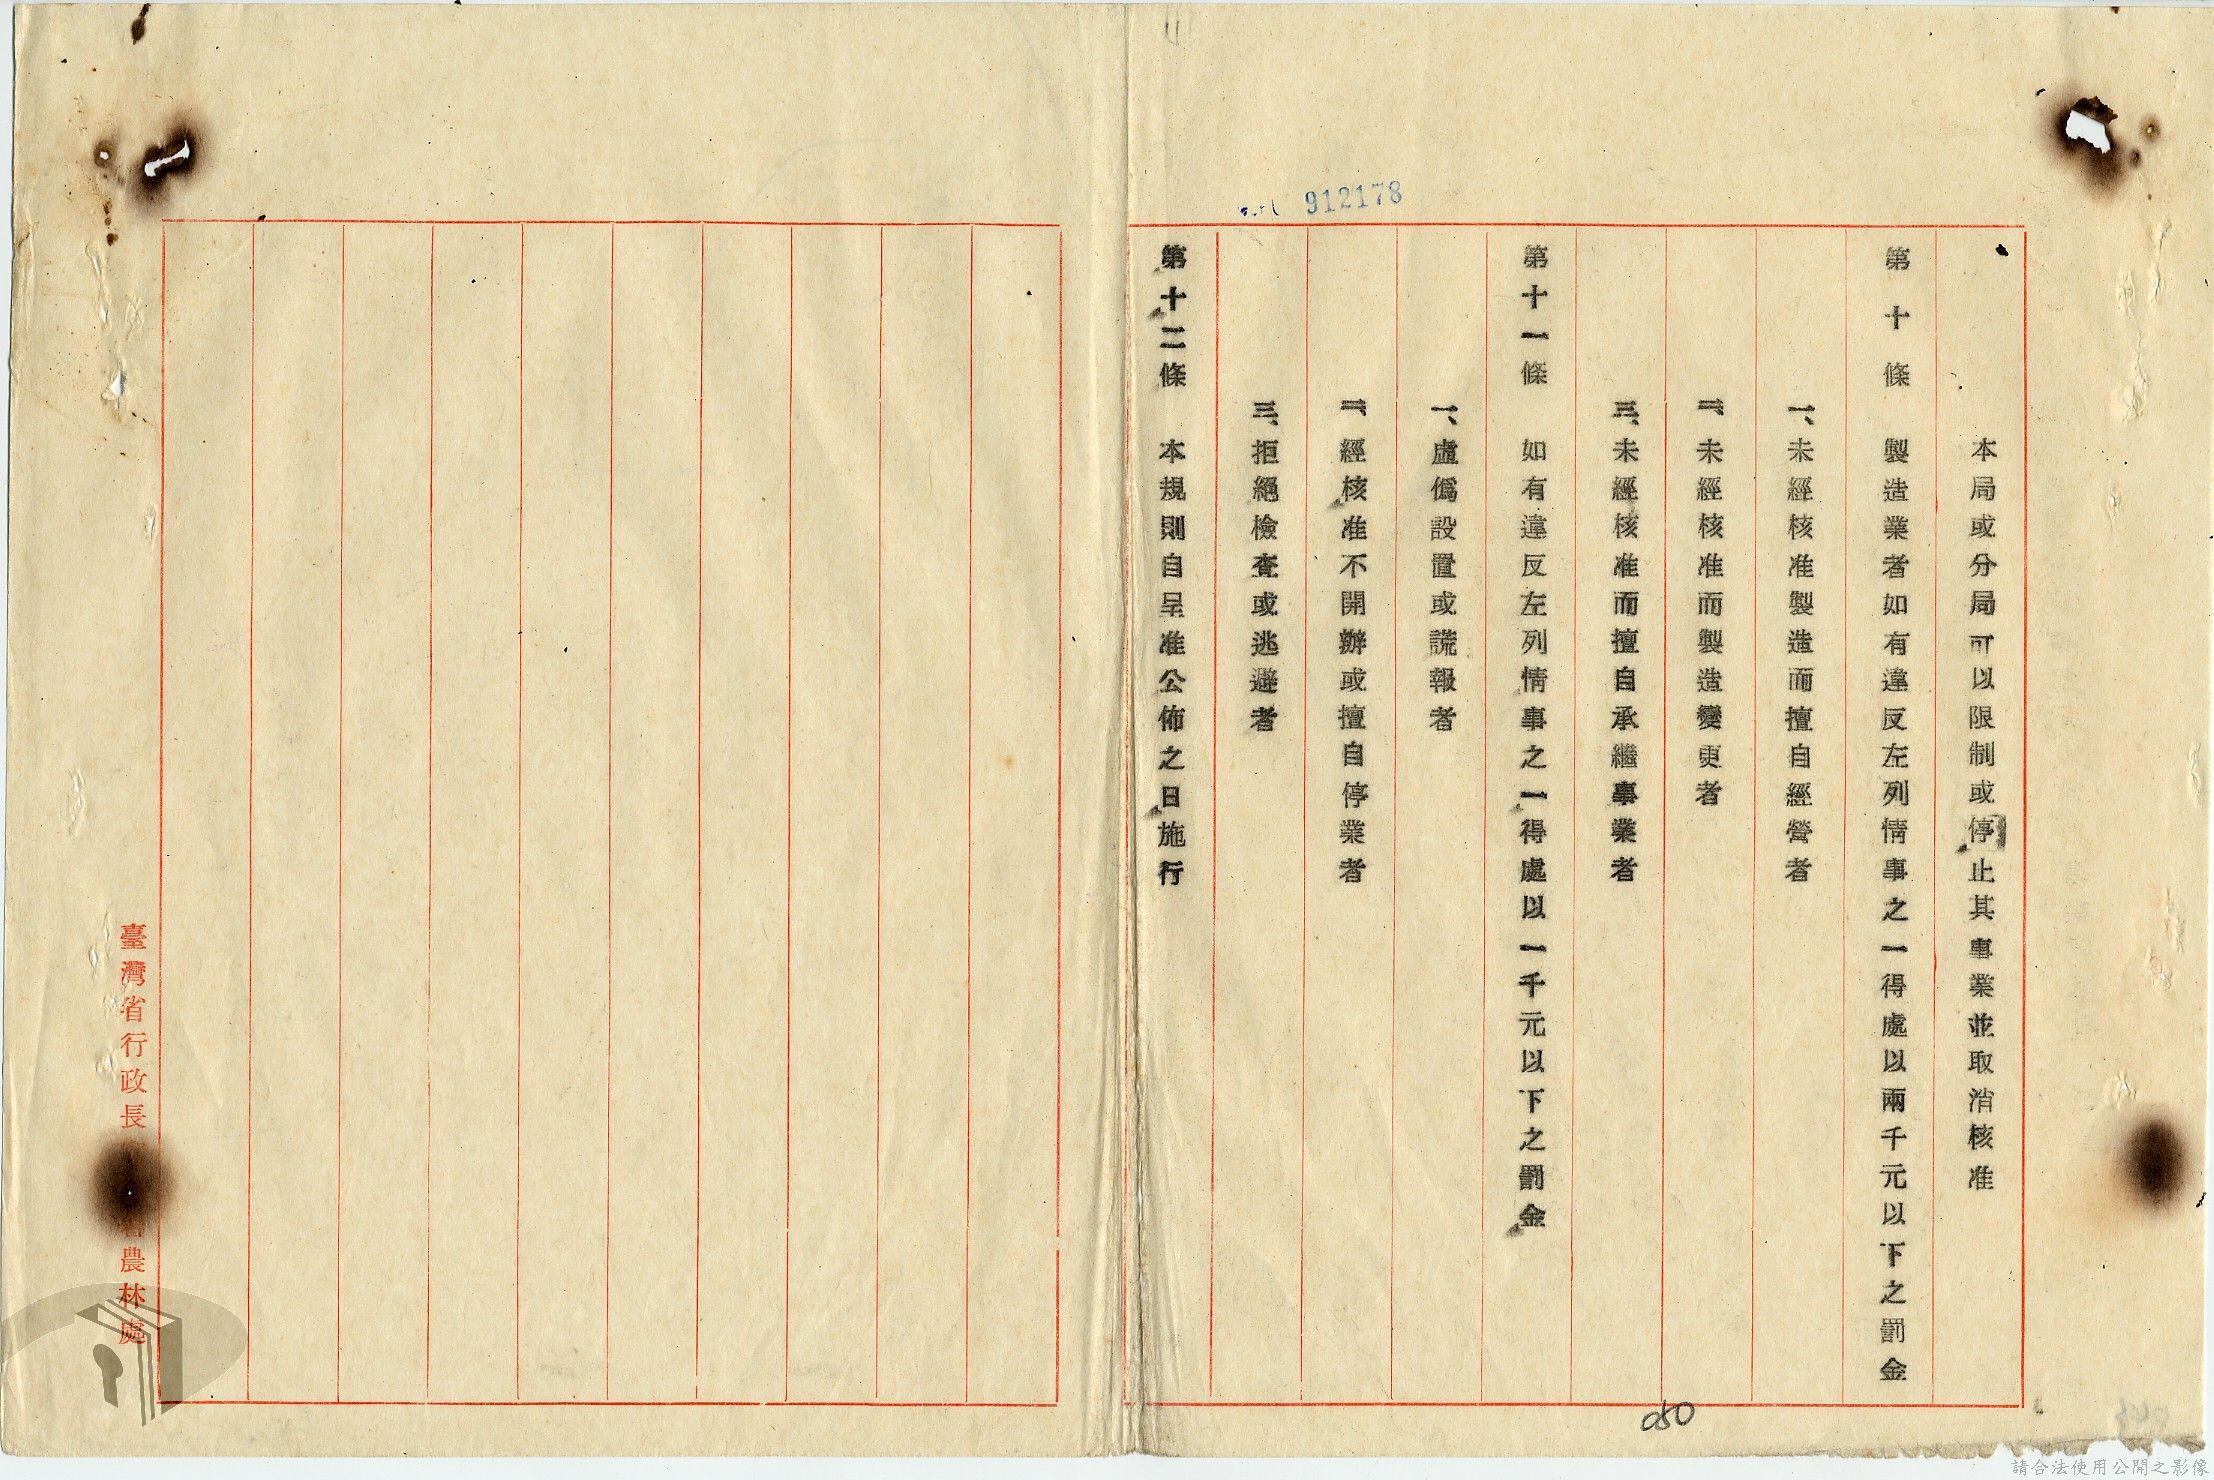 912178
本局或分局可以限制或停止其事業並取消核准
第十條 製造業者如有違反左列情事之一得處以兩千元以下之罰金
一、未經核准製造而擅自經營者
二、未經核准而製造變更者
三、未經核准而擅自承繼事業者
第十一條 如有違反左列情事之一得處以一千元以下之罰金
一、虛僞設置或謊報者
二、經核准不開辦或擅自停業者
三、拒絕檢查或逃避者
第十二條 本規則自呈准公佈之日施行
臺灣省行政長
農林處
050
請合法使用公開之影像